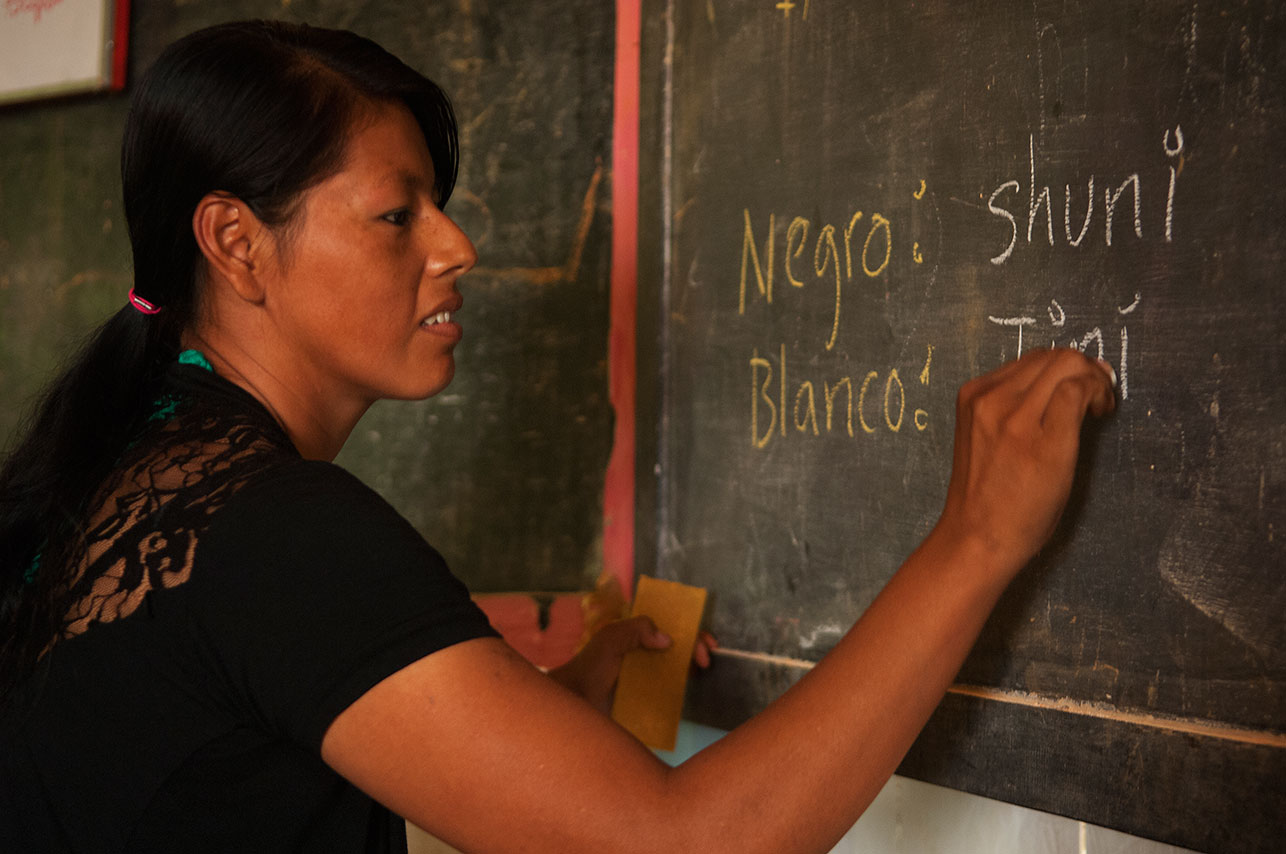 Negro: shuni
Blanco: